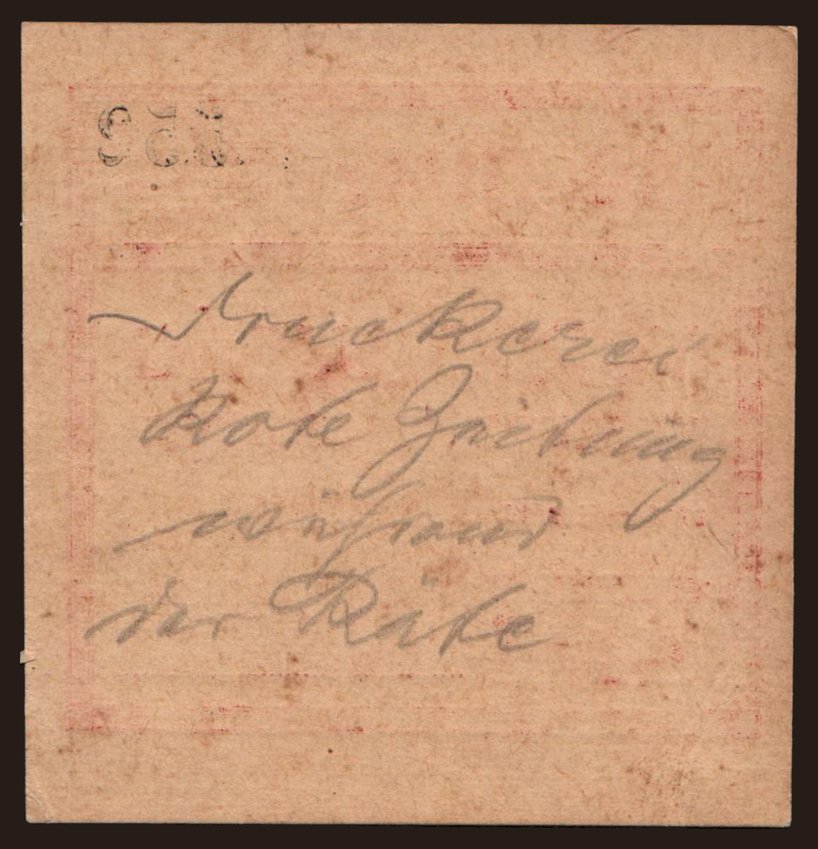 Druckerei
Rote Zeitung
während
der Räte